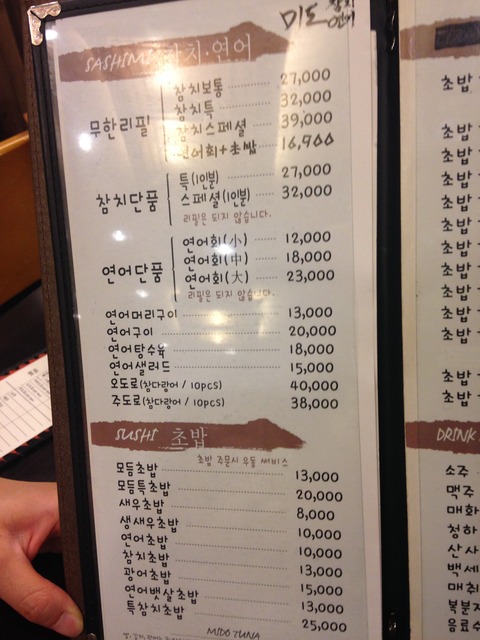 미도 참치
연어
SASHIMI 참치·연어
무한리필
참치보통 27,000
참치특 32,000
참치스페셜 39,000
연어회+초밥 16,900
참치단품
특(1인분) 27,000
스페셜(1인분) 32,000
리필은 되지 않습니다.
연어단품
연어회(小) 12,000
연어회(中) 18,000
연어회(大) 23,000
리필은 되지 않습니다.
연어머리구이 13,000
연어구이 20,000
연어탕수육 18,000
연어샐러드 15,000
오도로(참다랑어 / 10pcs) 40,000
주도로(참다랑어 / 10pcs) 38,000
SUSHI 초밥
초밥 주문시 우동 써비스
모듬초밥 13,000
모듬특초밥 20,000
새우초밥 8,000
생새우초밥 10,000
연어초밥 10,000
참치초밥 13,000
광어초밥 15,000
연어뱃살초밥 13,000
특참치초밥 25,000
MIDO TUNA
초밥
초밥
초밥
초밥
초밥
초밥
초밥
초밥
초밥
초밥
초밥
초밥
DRINK
소주
맥주
매화
청하
산사
백세
매취
복분자
음료수